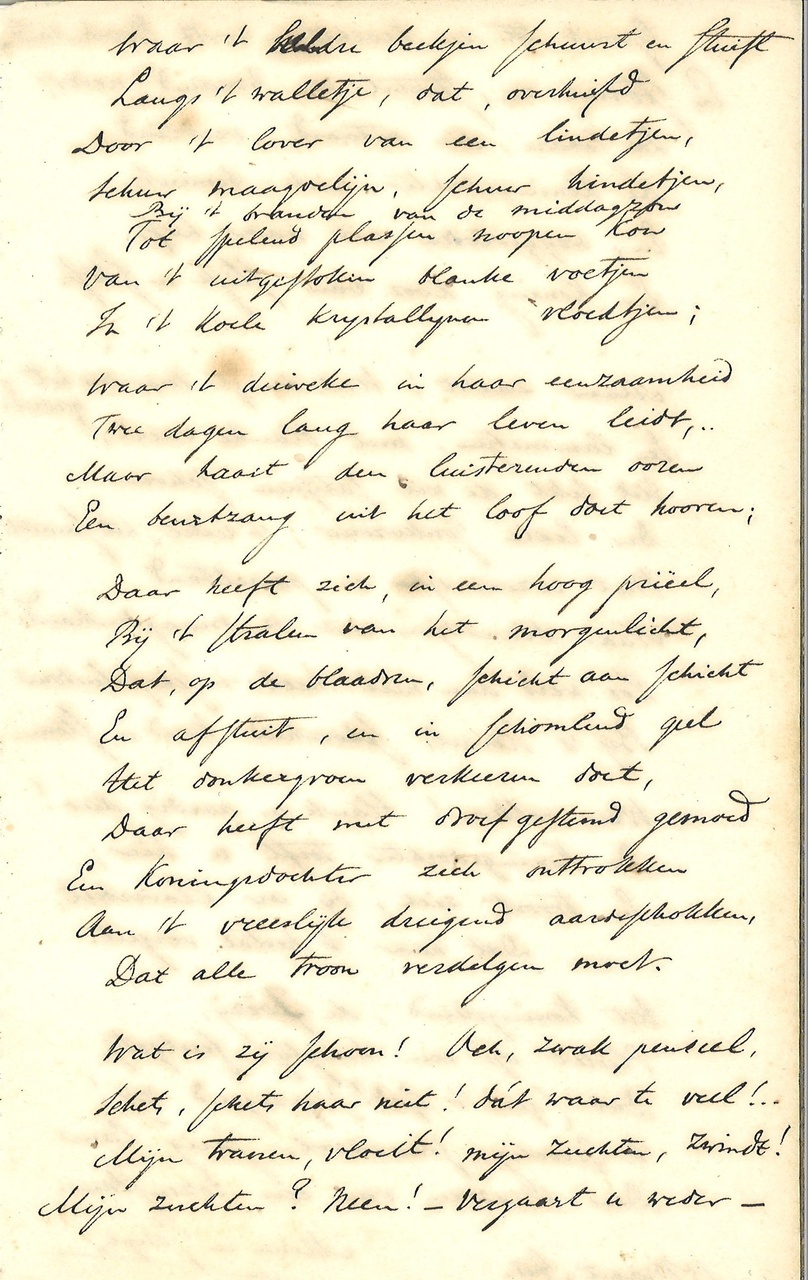 Waar 't heldre beekjen schuurt en stuift
Langs 't walletje, dat, overhuifd
Door 't lover van een lindetjen,
Schuw maagdelijn, schuw hindetjen,
Bij 't branden van de middagzon
Tot spelend plassen noopen kon
Van 't uitgestoken blanke voetjen
In 't koele krystallynen vloedtjen;
Waar 't duiveke in haar eenzaamheid
Twee dagen lang haar leven leidt,..
Maar haast den luisterenden ooren
Een beurtzang uit het loof doet hooren;
Daar heeft zich, in een hoog priëel,
Bij 't stralen van het morgenlicht,
Dat, op de blaadren, schicht aan schicht
En afstuit, en in schomlend spel
Het donkergroen verkleuren doet,
Daar heeft met droef gestemd gemoed
Een Koningsdochter zich onttrokken
Aan 't vreeslijk dreigend aardschokken,
Dat alle troon verdelgen moet.
Wat is zij schoon! Och, zwak penseel,
Schets, schets haar niet! dát waar te veel!..
Mijn tranen, vloeit! mijn zuchten, zwindt!
Mijn zuchten? Neen! — Vergaart u weder —